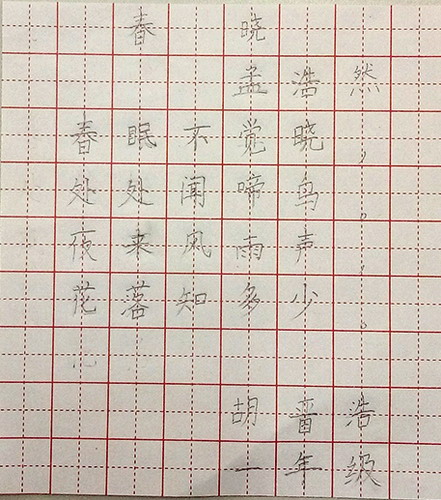 春晓
孟浩然
春眠不觉晓，
处处闻啼鸟。
夜来风雨声，
花落知多少。
胡浩
一年级